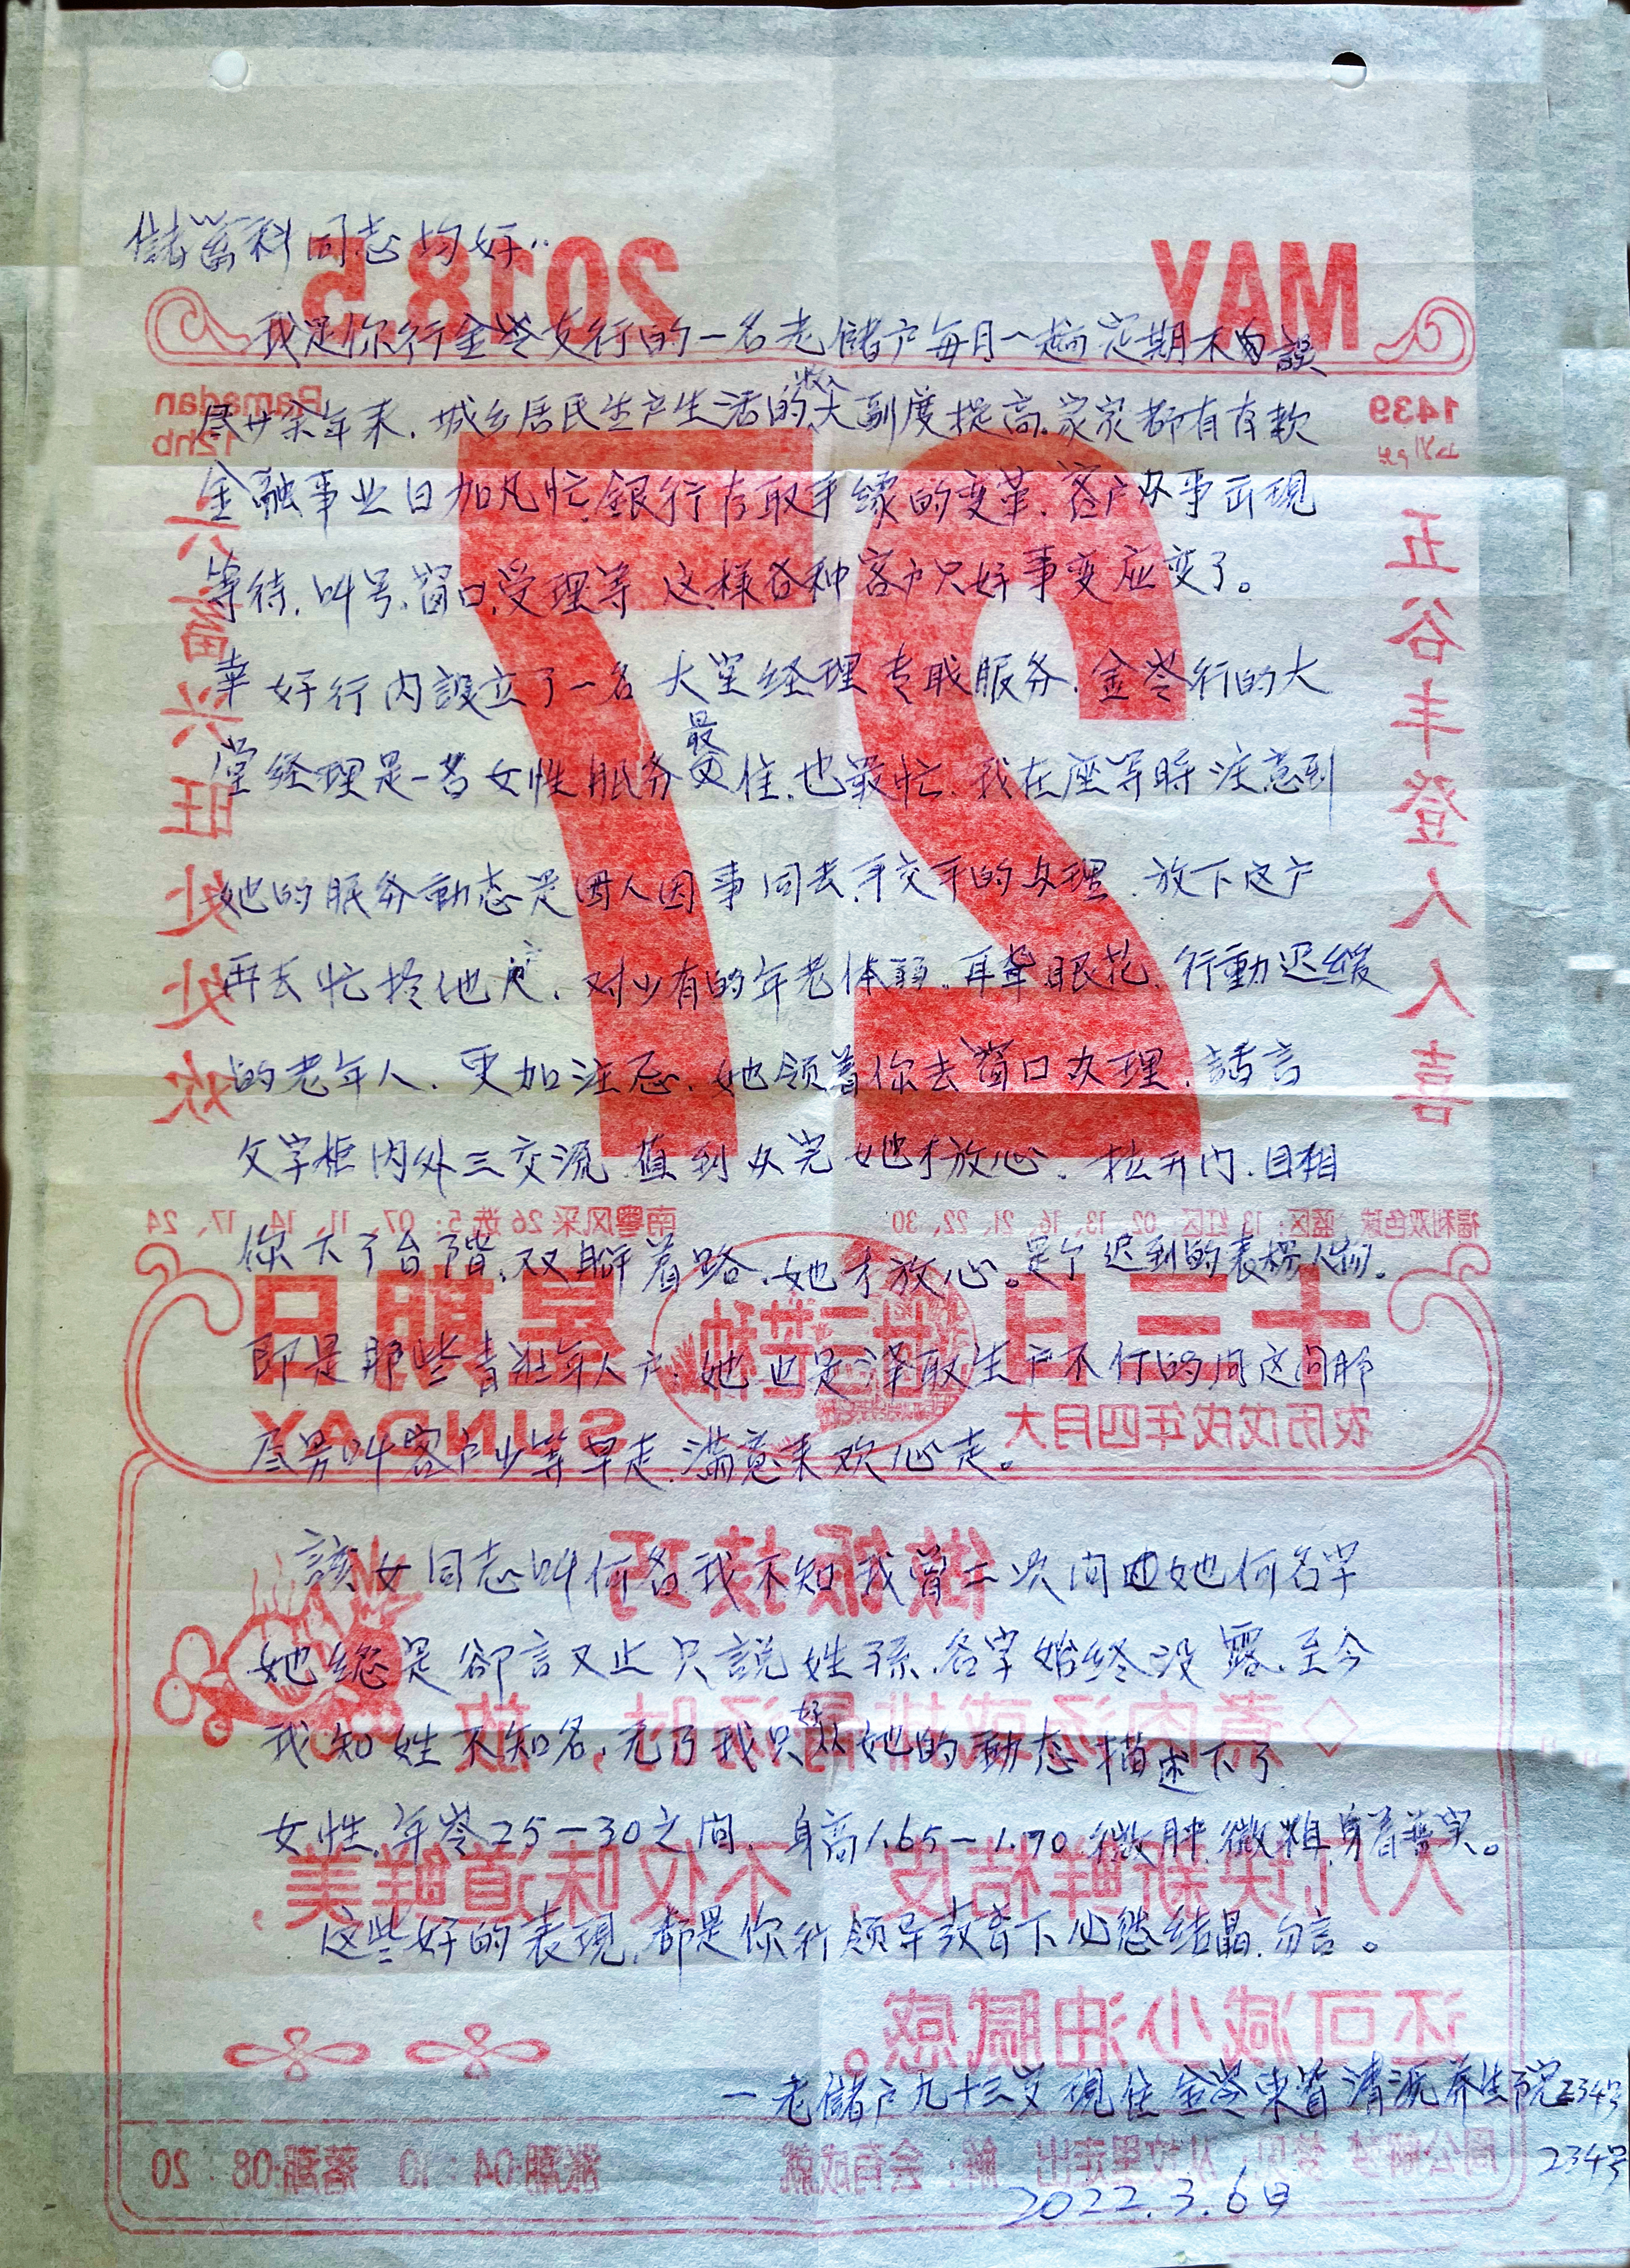 儲蓄科同志均好:
我是你行金苓支行的一名老儲户每月一趟定期不自誤
尽廿余年来.城乡居民生产生活的收入大副度提高.家家都有存款
金融事业日加凡忙.銀行存取手续的变革.客户办事出現
等待.叫号.窗口.受理等 这样各种客户只好事变应变了。
幸好行内設立了一名大堂经理专职服务.金苓行的大
堂经理是一名女性服务最佳.也最忙.我在座等時注意到
她的服务動态是因人因事同去.手交手的办理.放下这户
再去忙接他户.对少有的年老体弱.耳聋眼花.行動迟缓
的老年人.更加注意.她领着你去窗口办理.話言
文字柜内外三交流.值到办完她才放心.拉开门.目相
你下了台階.双脚着路.她才放心。是个迟到的表揚人物。
即是那些青壮年人户.她也是
尽另叫客户少等早走.满意来欢心走。
該女同志叫何名我不知我曾二次问过她何名字
她總是卻言又止只説姓孫.名字始终没露.至今
我知姓不知名.无了我只好从她的動态描述下了
女性.年岺25-30之间.身高1.65-1.70微胖.微粗.身着普实。
这些好的表現.都是你行领导教育下心慭结晶.勿言。
一老儲户九十三岁现住金苓東首清源养生院234号
234号
2022.3.6日
MAY
2018.5
1439
Ramadan
12hb
27
五谷丰登人人喜
六畜兴旺处处欢
福利双色球 蓝区:13 红区:02、13、16、21、22、30
南粤风采 26 选 5:07、11、14、17、24
十三日
星期日
SUNDAY
农历戊戌年四月大
廿三芒种
做饭技巧
◇煮肉汤或排骨汤时,放
入几块新鲜桔皮,不仅味道鲜美,
还可减少油腻感。
周公解梦 梦见:从坟里走出 解:会有成就
涨潮:04:10 落潮:08:20